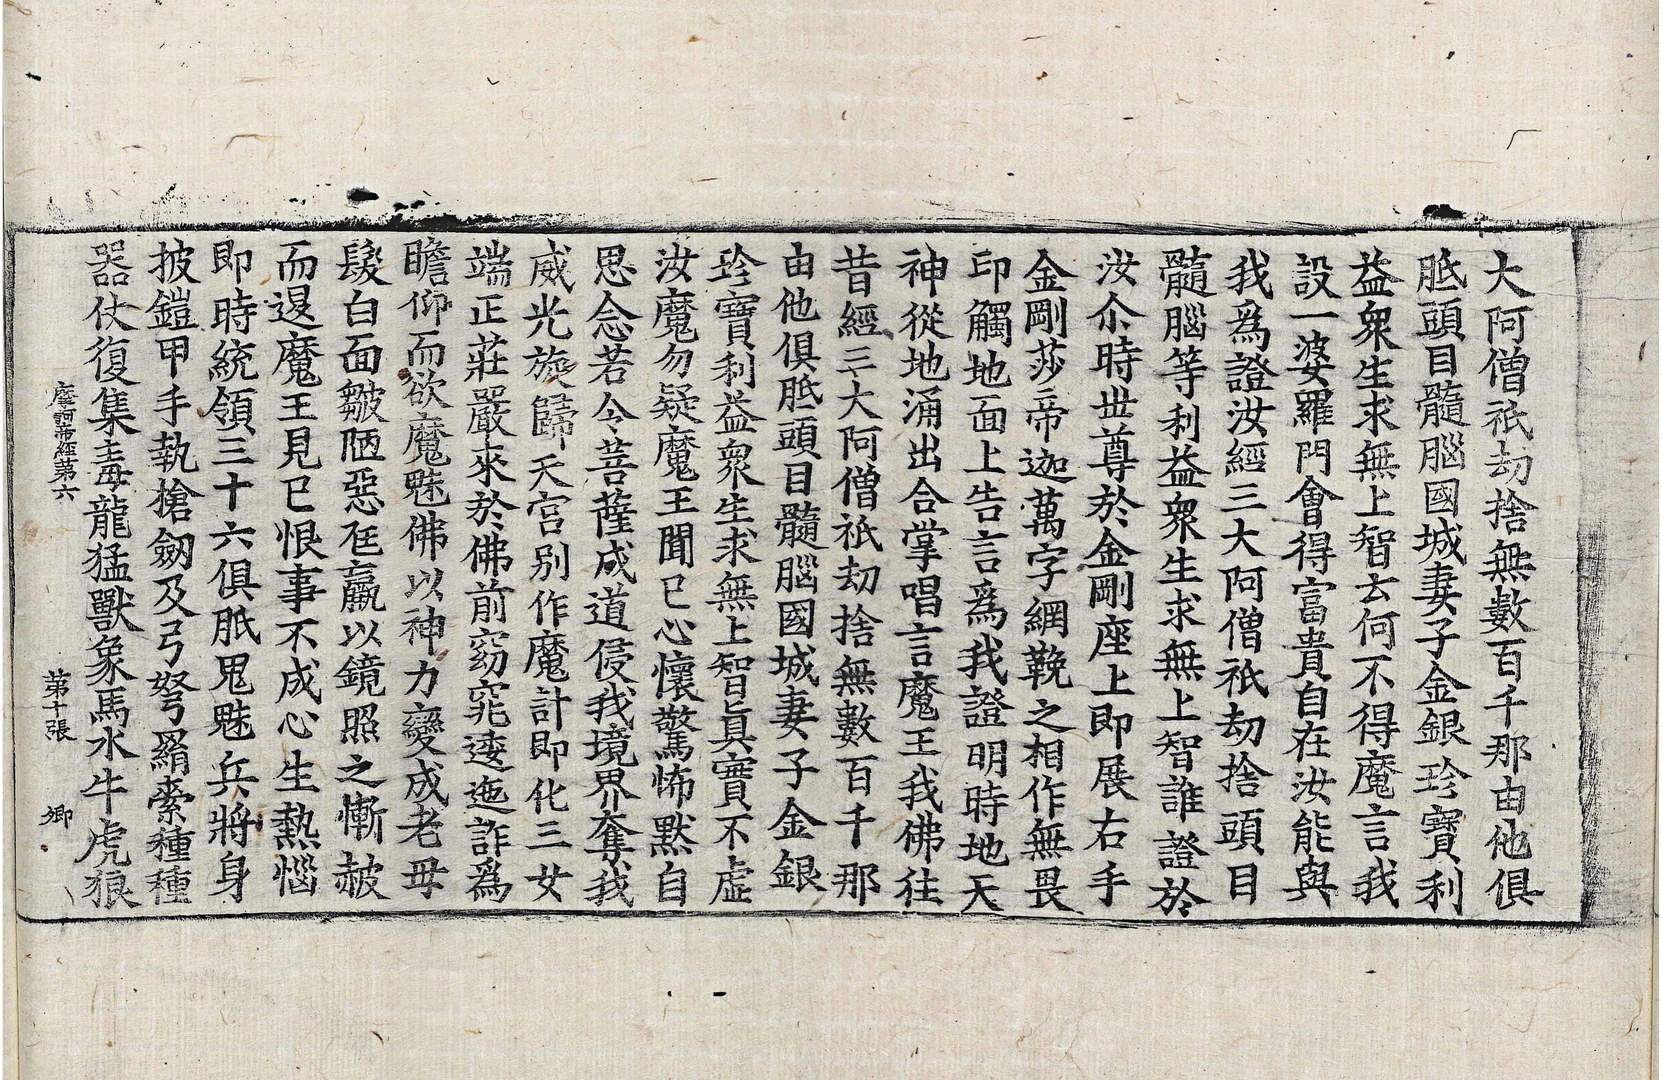 大阿僧祇劫捨無數百千那由他俱
胝頭目髓腦國城妻子金銀珍寶利
益衆生求無上智云何不得魔言我
設一婆羅門會得富貴自在汝能與
我爲證汝經三大阿僧祇劫捨頭目
髓腦等利益衆生求無上智誰證於
汝尒時世尊於金剛座上即展右手
金剛莎帝迦萬字網鞔之相作無畏
印觸地面上告言爲我證明時地天
神從地涌出合掌唱言魔王我佛往
昔經三大阿僧祇劫捨無數百千那
由他俱胝頭目髓腦國城妻子金銀
珍寶利益衆生求無上智真實不虛
汝魔勿疑魔王聞已心懷驚怖默自
思念若令菩薩成道侵我境界奪我
威光旋歸天宮別作魔計即化三女
端正莊嚴來於佛前窈窕逶迤詐爲
瞻仰而欲魔魅佛以神力變成老母
髮白面皺陋惡尫羸以鏡照之慚赧
而退魔王見已恨事不成心生熱惱
即時統領三十六俱胝鬼魅兵將身
披鎧甲手執槍劒及弓弩羂索種種
器仗復集毒龍猛獸象馬水牛虎狼
摩訶帝經第六　第十張　卿